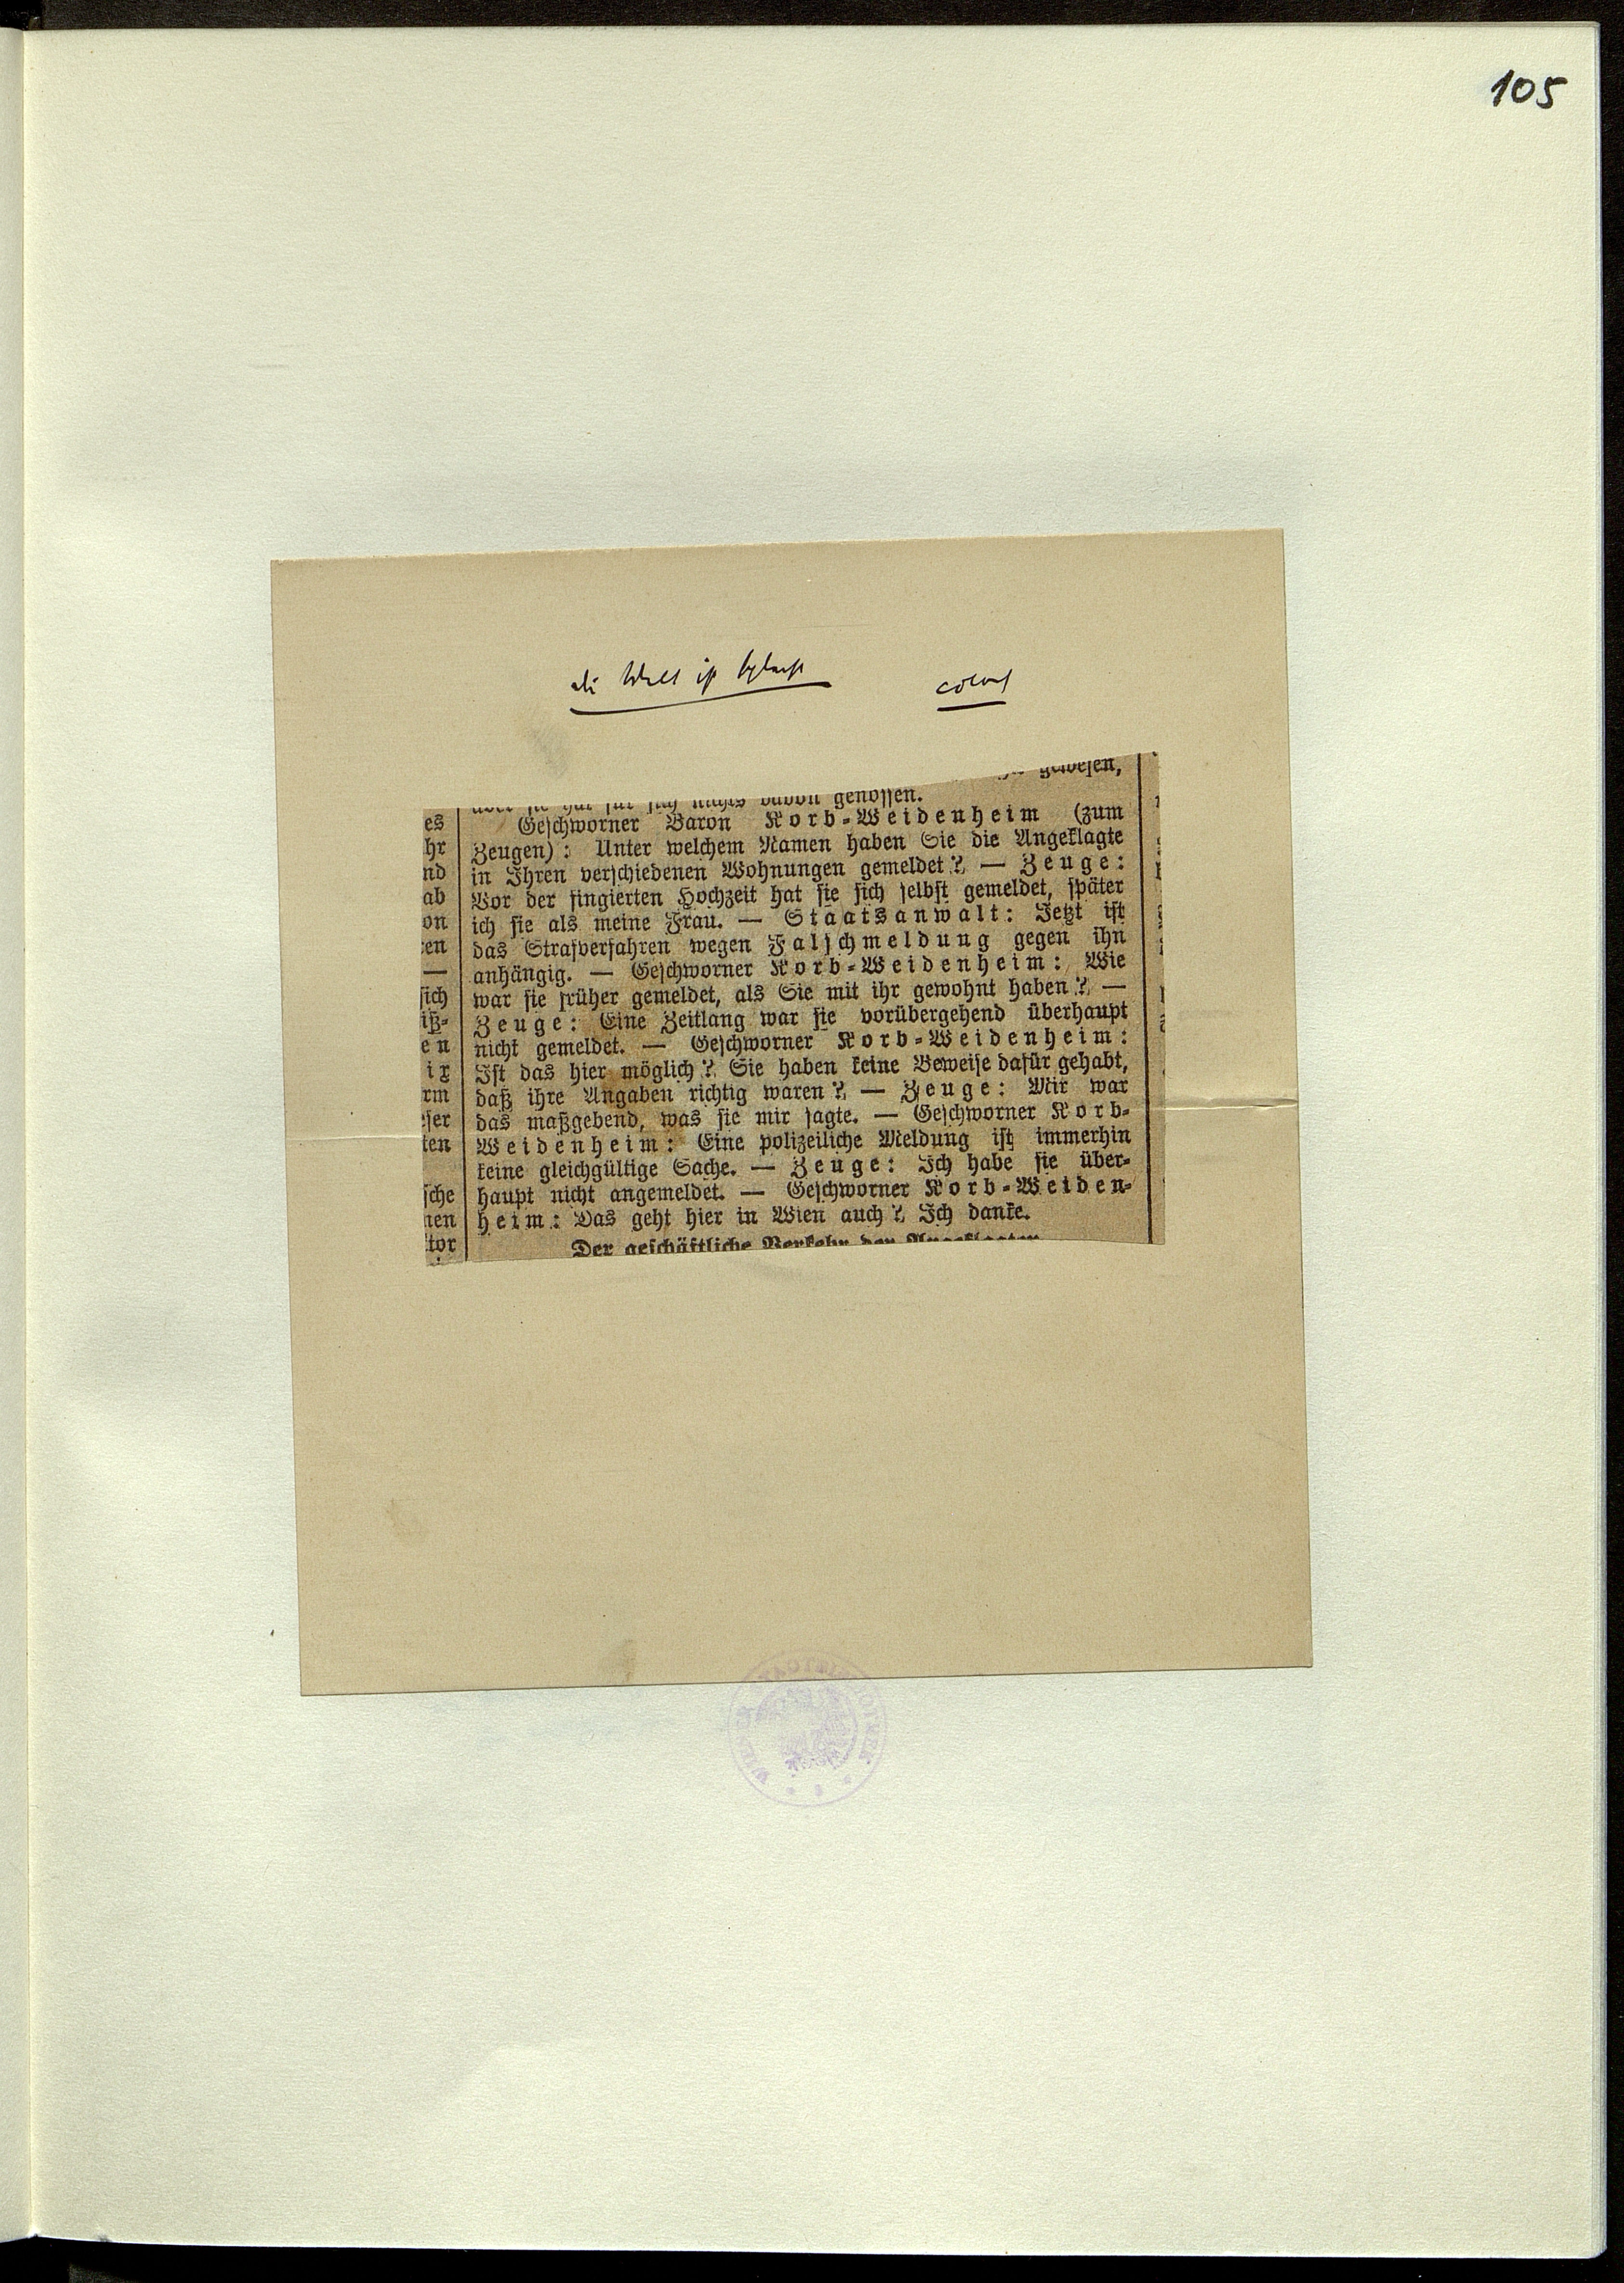 105
die Welt ist
gewesen,
aber sie hat für sich nichts davon genossen.
Geschworner Baron Korb-Weidenheim (zum
Zeugen): Unter welchem Namen haben Sie die Angeklagte
in Ihren verschiedenen Wohnungen gemeldet? — Zeuge:
Vor der fingierten Hochzeit hat sie sich selbst gemeldet, später
ich sie als meine Frau. — Staatsanwalt: Jetzt ist
das Strafverfahren wegen Falschmeldung gegen ihn
anhängig. — Geschworner Korb-Weidenheim: Wie
war sie früher gemeldet, als Sie mit ihr gewohnt haben? —
Zeuge: Eine Zeitlang war sie vorübergehend überhaupt
nicht gemeldet. — Geschworner Korb-Weidenheim:
Ist das hier möglich? Sie haben keine Beweise dafür gehabt,
daß ihre Angaben richtig waren? — Zeuge: Mir war
das maßgebend, was sie mir sagte. — Geschworner Korb-
Weidenheim: Eine polizeiliche Meldung ist immerhin
keine gleichgültige Sache. — Zeuge: Ich habe sie über-
haupt nicht angemeldet. — Geschworner Korb-Weiden-
heim: Das geht hier in Wien auch? Ich danke.
Der geschäftliche Verkehr der Angeklagten
es
hr
nd
ab
on
en
—
sich
iß-
en
ix
rm
eser
ten
sche
nen
tor